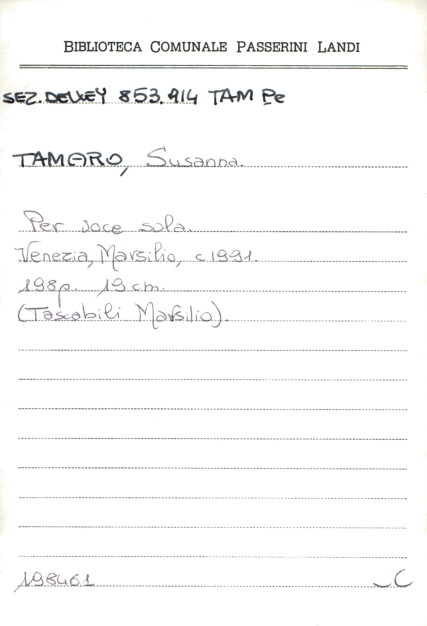 BIBLIOTECA COMUNALE PASSERINI LANDI
SEZ. DEWEY 853.914 TAM Pe
TAMARO, Susanna.
Per voce sola.
Venezia, Marsilio, c1991.
198p. 19 cm.
(Tascabili Marsilio).
198461